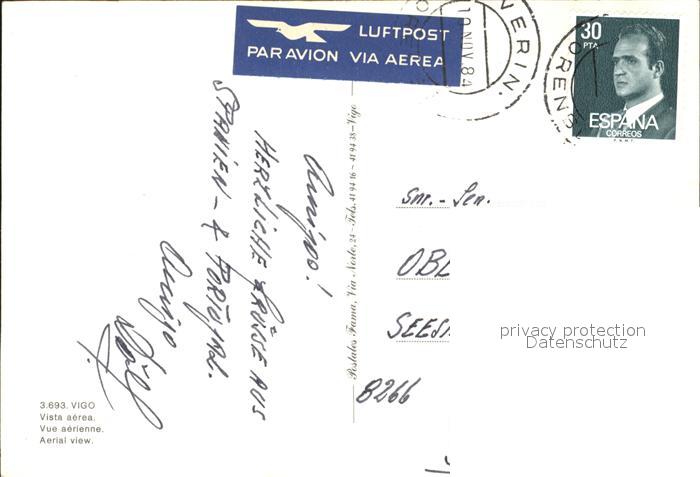 LUFTPOST
PAR AVION VIA AEREA
VERIN.
ORENS
10 NOV. 84
30
PTA
ESPAÑA
CORREOS
F.N.M.T.
Amigo!
HERZLICHE GRÜSSE AUS
SPANIEN - & PORTUGAL.
Amigo
Postales Fama, Vía Norte, 24 - Tels. 41 94 16 - 41 94 38 - Vigo
Snr. - Sen.
OBL
SEES
8266
privacy protection
Datenschutz
3.693. VIGO
Vista aérea.
Vue aérienne.
Aerial view.